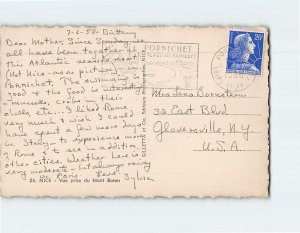 7-6-58 Brittany
Dear Mother, Since Sunday we
all have been together at
this Atlantic seaside resort
(Not Nice - as in picture)
Pornichet. The swimming is
good & the food is interesting
- mussels, crabs in their
shells, etc. I liked Rome
very much & wish I could
have spent a few more days
in Italy - to experience more
of Rome & to see in addition
other cities. Weather here is
very moderate - but always rainy
in Paris. Love
Sylvia
23. NICE - Vue prise du Mont Boron
PORNICHET
GILLETTA
NICE
20F
Mrs Lena Bornstein
32 East Blvd.
Gloversville, N.Y.
U.S.A.